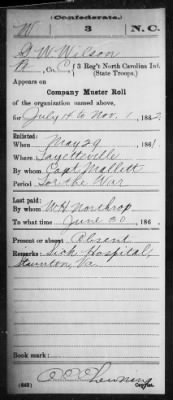 (Confederate.)
W 3 N.C.
G. W. Wilson
Co. C, 3 Reg't North Carolina Inf.
(State Troops.)
Appears on
Company Muster Roll
of the organization named above,
for July 1 to Nov. 1, 1862.
Enlisted:
When May 29, 1861
Where Fayetteville
By whom Capt Mallett
Period For the War
Last paid:
By whom W H Northrop
To what time June 30, 186
Present or absent Absent
Remarks: Sick Hospital,
Staunton, Va
Book mark:
(642) Copyist.